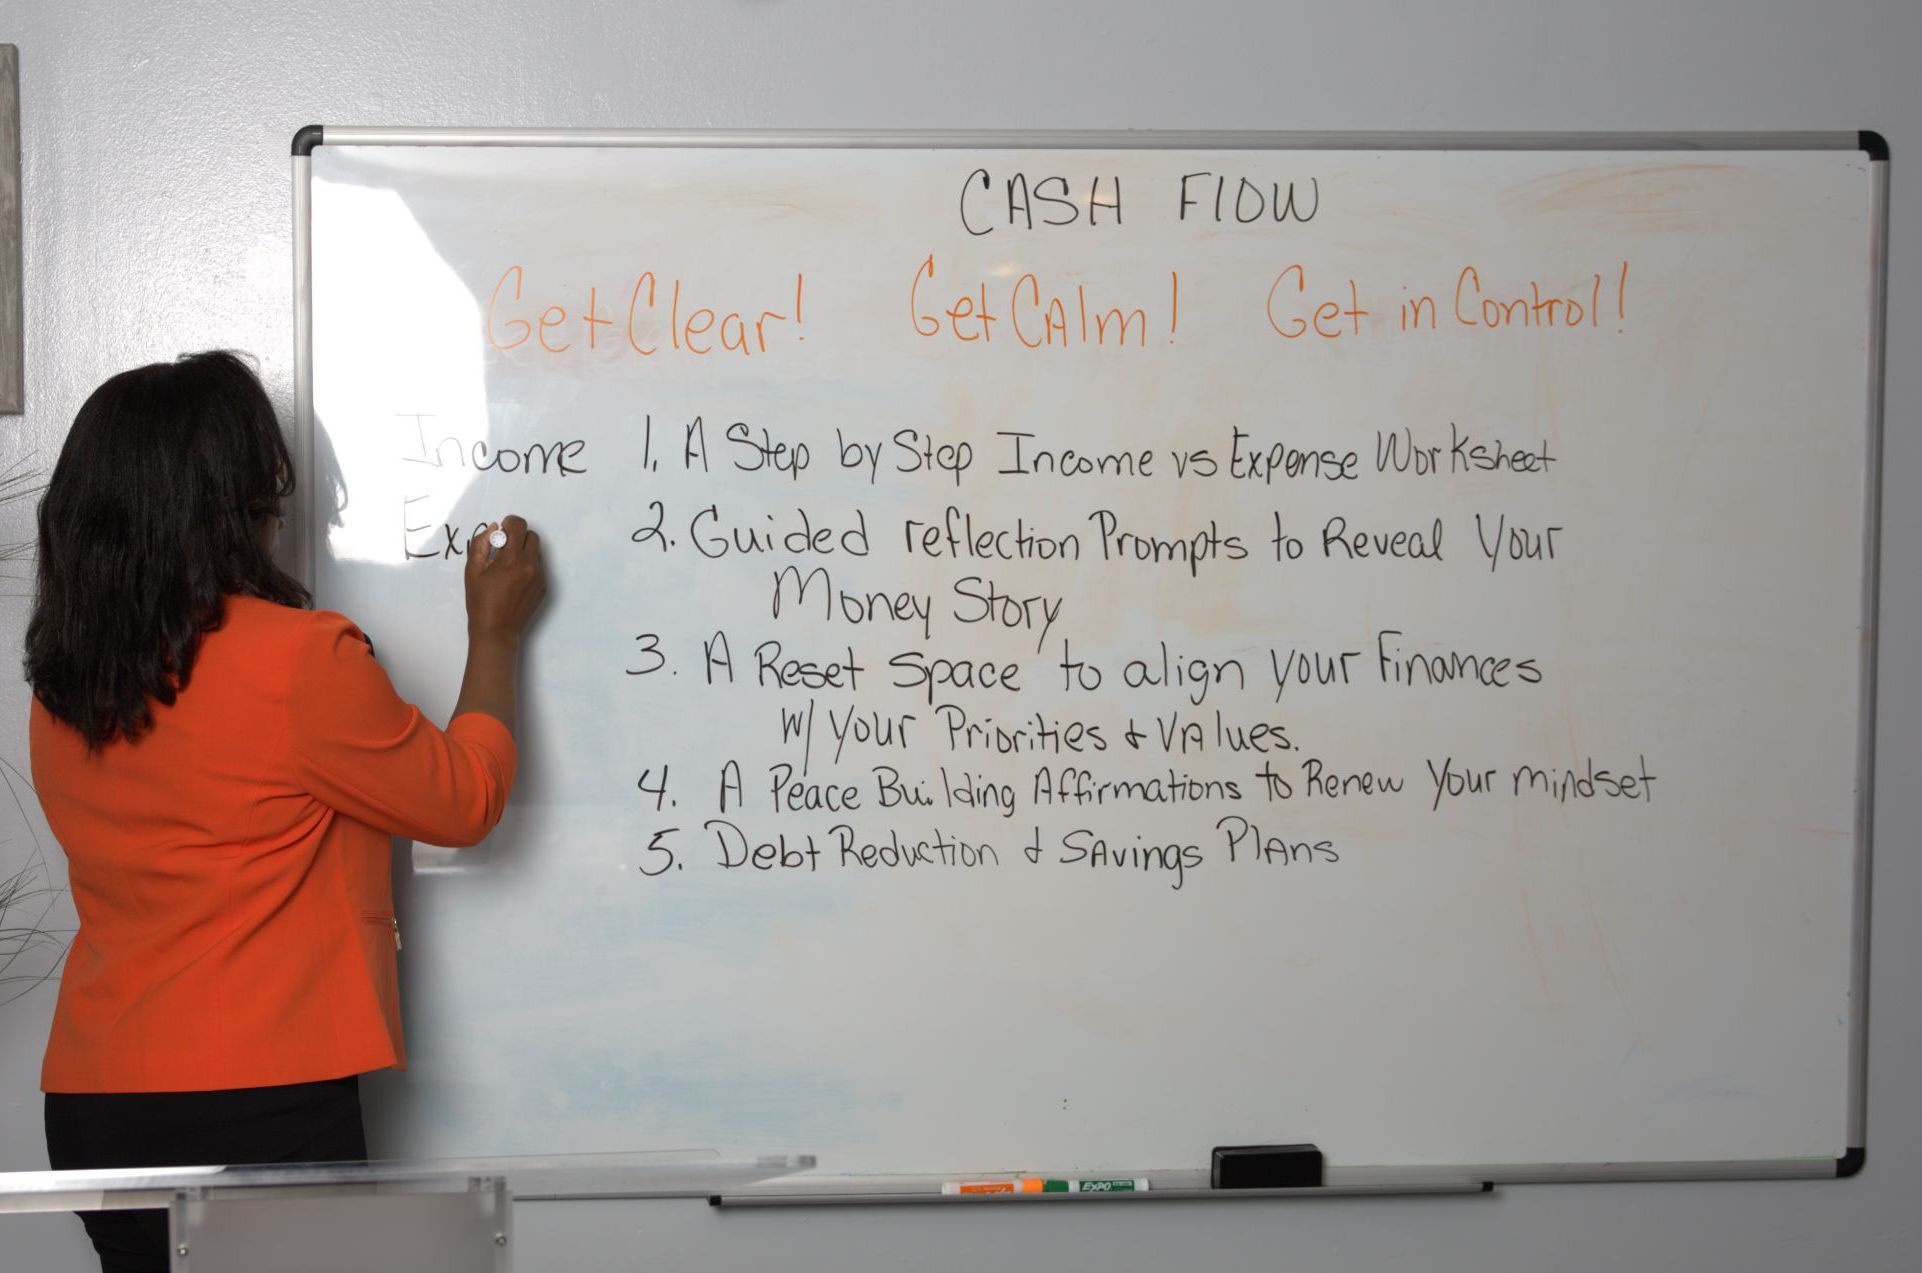 CASH FLOW
Get Clear! Get CAlm! Get in Control!
Income
1. A Step by Step Income vs Expense Worksheet
2. Guided reflection Prompts to Reveal Your
Money Story
3. A Reset Space to align your Finances
w/ your Priorities & VAlues.
4. A Peace Building Affirmations to Renew Your mindset
5. Debt Reduction & SAvings PlAns
EXPO